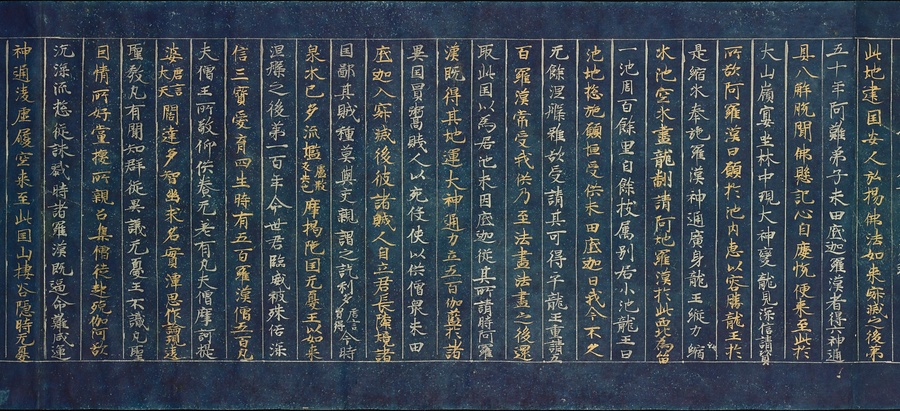 此地建国安人弘揚佛法如来寂滅之後第
五十年阿難弟子末田底迦羅漢者得六神通
具八解脱聞佛懸記心自慶悦便来至此於
大山嶺宴坐林中現大神變龍見深信請資
所欲阿羅漢曰願於池内惠以容膝龍王於
是縮水奉施羅漢神通廣身龍王縱力縮
水池空水盡龍翻請阿地羅漢於此西為留
一池周百餘里自餘枝属別居小池龍王曰
池地捴施願恒受供末田底迦曰我今不久
无餘涅槃雖欲受請其可得乎龍王重請五
百羅漢常受我供乃至法盡法盡之後還
取此国以為居池末田底迦從其所請時阿羅
漢既得其地運大神通力立五百伽藍於諸
異国買鬻賤人以充役使以供僧衆末田
底迦入寂滅後彼諸賤人自立君長隣境諸
国鄙其賤種莫與交親謂之訖利多唐言買得今時
泉水已多流濫摩揭陁国无憂王以如来
涅槃之後第一百年命世君臨威被殊俗深
信三寶愛育四生時有五百羅漢僧五百凡
夫僧王所敬仰供養无差有凡夫僧摩訶提
婆唐言大天闊達多智幽求名實潭思作論理違
聖教凡有聞知群從異議无憂王不識凡聖
因情所好黨援所親召集僧徒赴殑伽河欲
沉深流捴從誅戮時諸羅漢既逼命難咸運
神通凌虚履空来至此国山棲谷隱時无憂